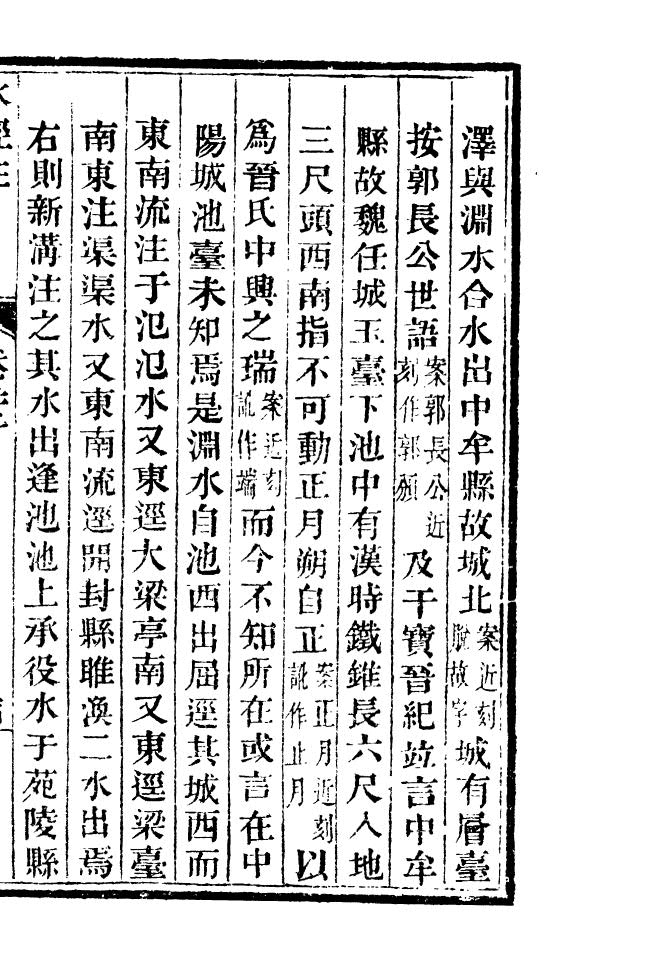 澤與淵水合水出中牟縣故城北案近刻脫故字城有層臺
按郭長公世語案郭長公近刻作郭頒及干寶晉紀竝言中牟
縣故魏任城王臺下池中有漢時鐵錐長六尺入地
三尺頭西南指不可動正月朔自正案正月近刻訛作止月以
爲晉氏中興之瑞案近刻訛作端而今不知所在或言在中
陽城池臺未知焉是淵水自池西出屈逕其城西而
東南流注于氾氾水又東逕大梁亭南又東逕梁臺
南東注渠渠水又東南流逕開封縣睢渙二水出焉
右則新溝注之其水出逢池池上承役水于苑陵縣
水經注